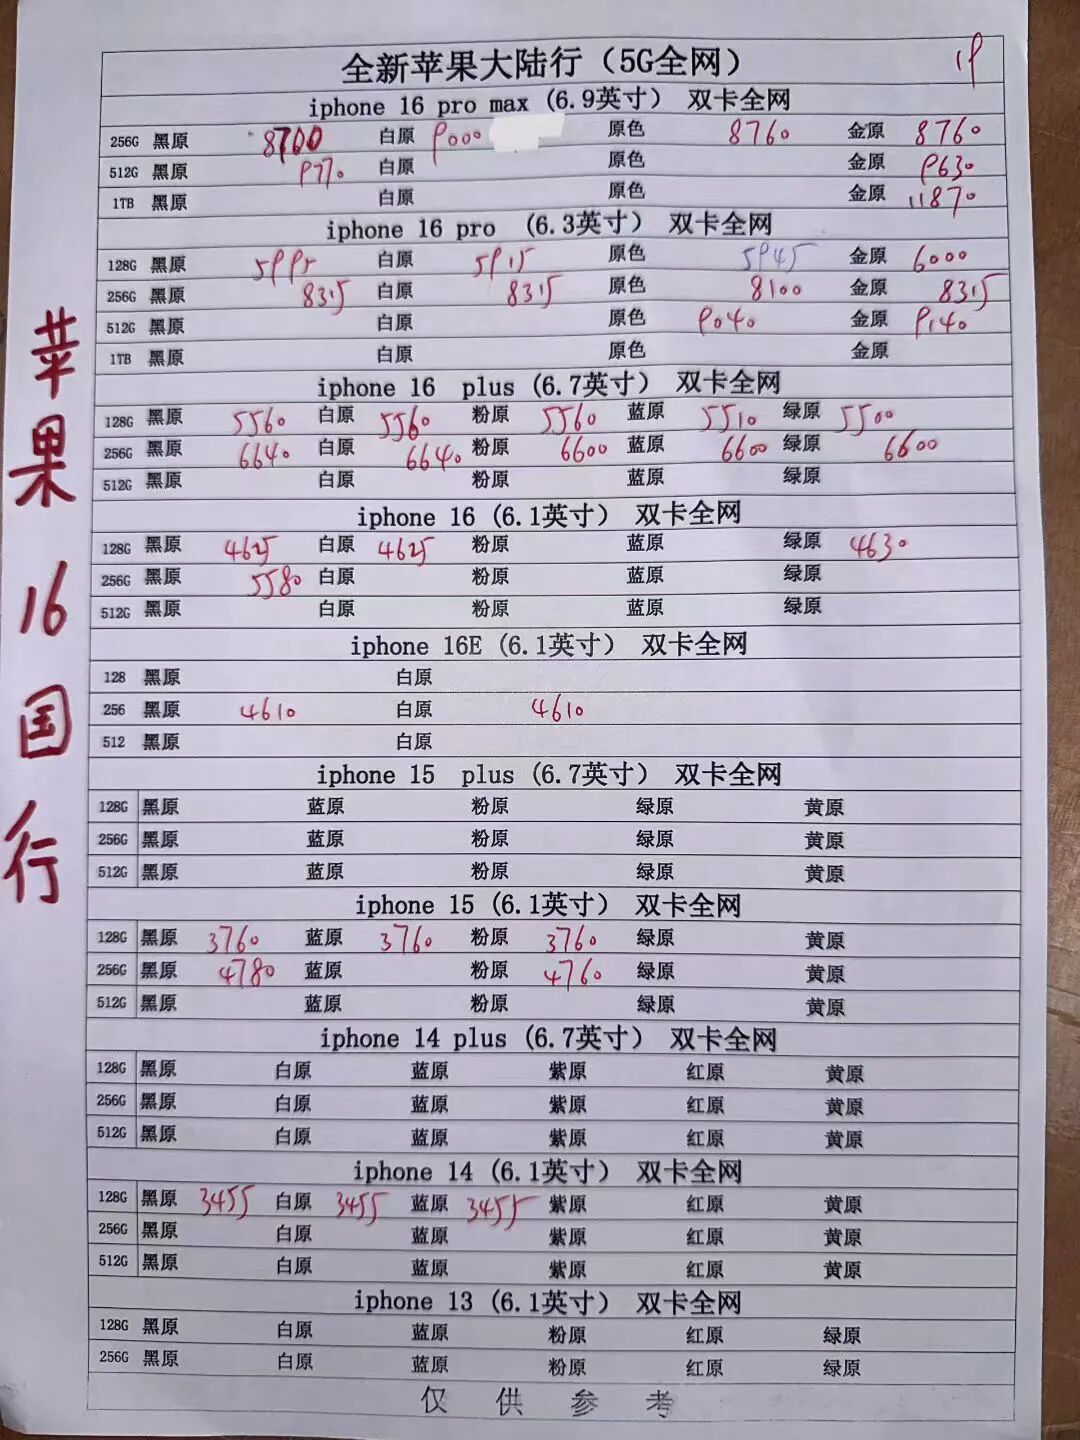 全新苹果大陆行（5G全网）
iphone 16 pro max (6.9英寸） 双卡全网
256G 黑原 8700 白原 9000 原色 8760 金原 8760
512G 黑原 9770 白原 原色 金原 9630
1TB 黑原 白原 原色 金原 11870
iphone 16 pro （6.3英寸） 双卡全网
128G 黑原 5995 白原 5915 原色 5945 金原 6000
256G 黑原 8315 白原 8315 原色 8100 金原 8315
512G 黑原 白原 原色 9040 金原 9140
1TB 黑原 白原 原色 金原
iphone 16 plus (6.7英寸） 双卡全网
128G 黑原 5560 白原 5560 粉原 5560 蓝原 5510 绿原 5500
256G 黑原 6640 白原 6640 粉原 6600 蓝原 6600 绿原 6600
512G 黑原 白原 粉原 蓝原 绿原
iphone 16 (6.1英寸） 双卡全网
128G 黑原 4625 白原 4625 粉原 蓝原 绿原 4630
256G 黑原 5580 白原 粉原 蓝原 绿原
512G 黑原 白原 粉原 蓝原 绿原
iphone 16E (6.1英寸） 双卡全网
128 黑原 白原
256 黑原 4610 白原 4610
512 黑原 白原
iphone 15 plus (6.7英寸） 双卡全网
128G 黑原 蓝原 粉原 绿原 黄原
256G 黑原 蓝原 粉原 绿原 黄原
512G 黑原 蓝原 粉原 绿原 黄原
iphone 15 (6.1英寸） 双卡全网
128G 黑原 3760 蓝原 3760 粉原 3760 绿原 黄原
256G 黑原 4780 蓝原 粉原 4760 绿原 黄原
512G 黑原 蓝原 粉原 绿原 黄原
iphone 14 plus (6.7英寸） 双卡全网
128G 黑原 白原 蓝原 紫原 红原 黄原
256G 黑原 白原 蓝原 紫原 红原 黄原
512G 黑原 白原 蓝原 紫原 红原 黄原
iphone 14 (6.1英寸） 双卡全网
128G 黑原 3455 白原 3455 蓝原 3455 紫原 红原 黄原
256G 黑原 白原 蓝原 紫原 红原 黄原
512G 黑原 白原 蓝原 紫原 红原 黄原
iphone 13 (6.1英寸） 双卡全网
128G 黑原 白原 蓝原 粉原 红原 绿原
256G 黑原 白原 蓝原 粉原 红原 绿原
仅供参考
苹果16国行